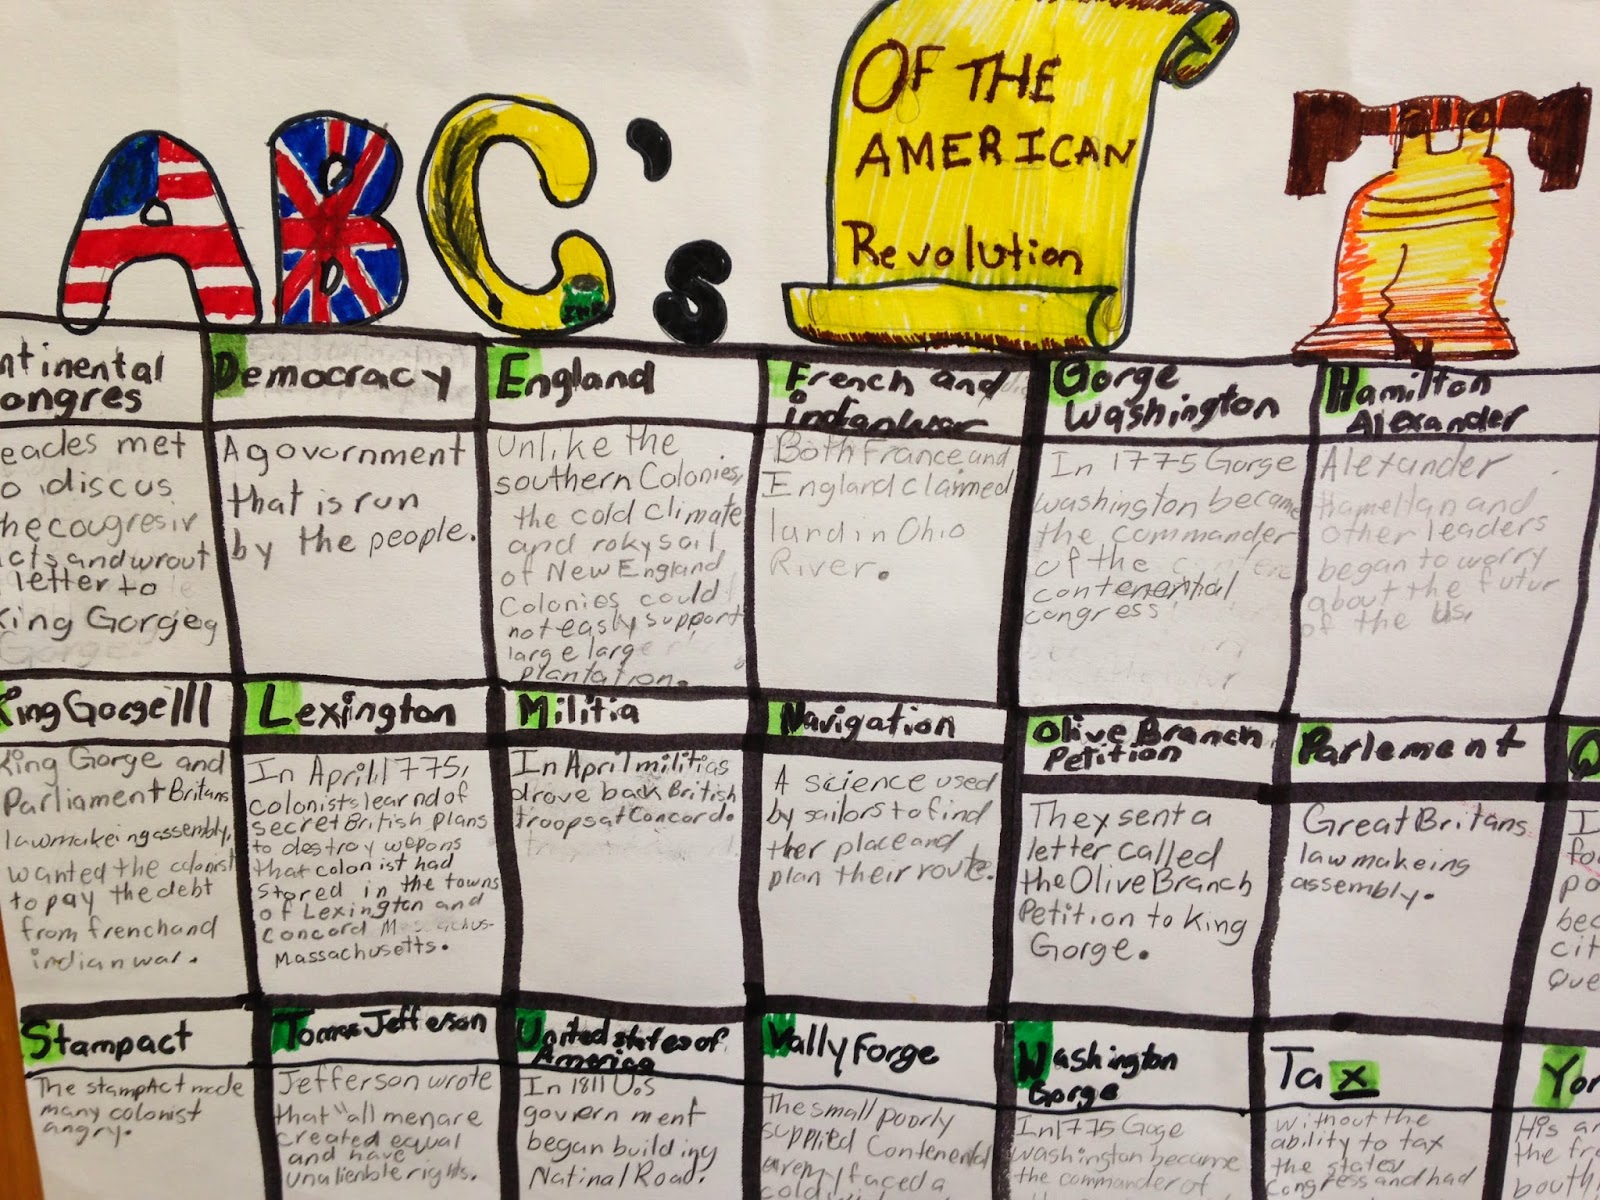 ABC's
OF THE
AMERICAN
Revolution
ntinental
ongres
eacles met
o discus
hecougresiv
acts and wrout
letter to
King Gorgeg
Democracy
A govornment
that is run
by the people.
England
Unlike the
southern Colonies,
the cold climate
and roky soil
of New England
Colonies could
not easly support
large larg
plantation.
French and
indian war
Both France and
England claimed
land in Ohio
River.
Gorge
Washington
In 1775 Gorge
washington became
the commander
of the
contenential
congress
Hamilton
Alexander
Alexander
Hameltan and
other leaders
began to worry
about the futur
of the Us,
King Gorge III
King Gorge and
Parliament Britans
lawmakeing assembly,
wanted the colonist
to pay the debt
from frenchand
indian war.
Lexington
In April, 1775,
colonists learnd of
secret British plans
to destroy wepons
that colonist had
stored in the towns
of Lexington and
concord
Massachusetts.
Militia
In April militias
drove back British
troops at Concord.
Navigation
A science used
by sailors to find
ther place and
plan their route.
Olive Branch
Petition
They sent a
letter called
the Olive Branch
Petition to King
Gorge.
Parlement
Great Britans
lawmakeing
assembly.
Q
I
fo
po
bec
cit
Que
Stampact
The stampAct made
many colonist
angry.
Tomas Jefferson
Jefferson wrote
that "all menare
created equal
and have
unalienble rights.
United states of
America
In 1811 U.S
government
began building
Natinal Road.
Vally Forge
The small poorly
supplied Contenental
army faced a
cold
Washington
Gorge
In 1775 Goge
washington became
the commander of
Tax
without the
ability to tax
the states
Congress and had
Yor
His ar
the fr
bouth